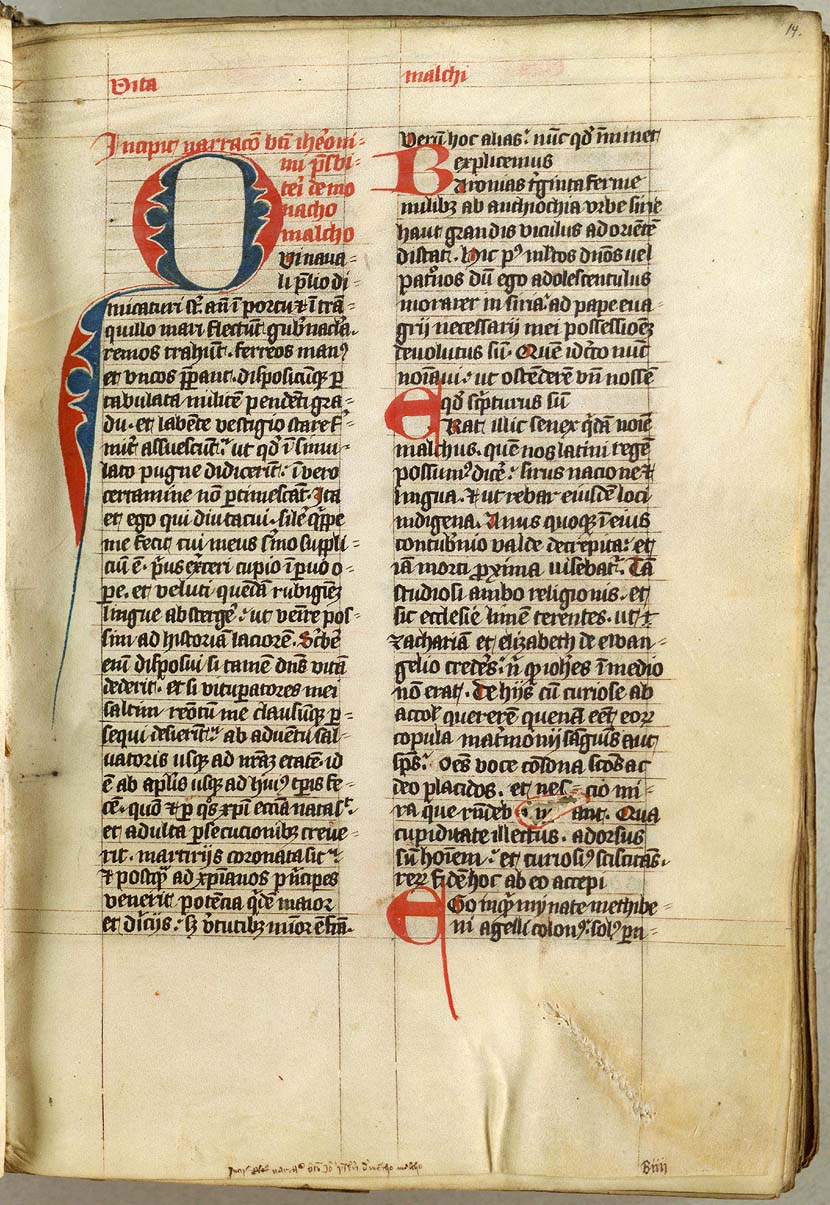 14.
Vita
malchi
Incipit narracō bti iheroni-
mi psbi-
teri de mo
nacho
malcho
Qui naua-
li plio di-
micaturi st. an̄ ī portu ⁊ ī trā-
quillo mari flectunt gubnacla.
remos trahunt. ferreos manꝰ
et vncos ppant. dispositumqꝫ p
tabulata militē pendenti gra-
du. et labente vestigio stare fir-
mit assuescunt. ut qd ī simu-
lato pugne didicerit. ī vero
certamine nō ptimescāt. Ita
et ego qui diu tacui. silere qppe
me fecit cui meus smo suppli-
ciū ē. prius exerceri cupio ī puo o-
pe. et veluti quendā rubiginē
lingue absterge. ut venire pos-
sim ad historiā laciorē. Scribe
enī disposui si tamen dns vitā
dederit. et si vitupatores mei
saltim reōtum me clausumqꝫ p-
sequi desierit. ab aduentu sal-
uatoris usqꝫ ad nrāꝫ etatē. id
ē ab aplis usqꝫ ad huiꝰ tpris fe-
cē. quō ⁊ p qs xpi eccīa nata sit.
et adulta psecutionibꝫ creue-
rit. martirijs coronata sit
⁊ postqꝫ ad xpianos pncipes
venerit potencia qdē maior
et diuicijs. sꝫ vtutibꝫ minor effca.
Verū hoc alias. nūc qd īminet
explicemus
Maronias triginta ferme
milibꝫ ab anthiochia vrbe sirie
haut grandis viculus ad orientē
distat. Hic pꝰ mltos dnos uel
patronos dū ego adolescentulus
morarer in siria. ad pape eua-
grij necessarij mei possessionē
deuolutus sū. Quē idcirco nunc
noīaui. ut ostēderē vn̄ nossē
qd scripturus sū
Erat illic senex qdā noīe
malchus. quē nos latini regē
possumꝰ dicere. sirus nacione ⁊
lingua. ⁊ ut rebar eiusdē loci
indigena. Anus quoqꝫ ī eius
contubnio valde decrepita. et
iā morti proxima uisebat. Tā
studiosi ambo religionis. et
sic ecclesie limē terentes. ut
zachariā et elizabeth de ewan-
gelio crederes. n̄ qꝫ iohes ī medio
nō erat. De hijs cū curiose ab
accol quererē quenā eēt eoꝝ
copula matrimonij sāguīs aut
sps. Oēs voce cōsona scōs ac
deo placidos. et nes- cio mi-
ra que rndeb ant. Qua
cupiditate illectus. adorsus
sū hoīem. et curiosiꝰ sciscitās.
reꝝ fidē hoc ab eo accepi
Ego inqt mi nate nethibe-
ni agelli colonꝰ. solꝰ pa-
Biiij